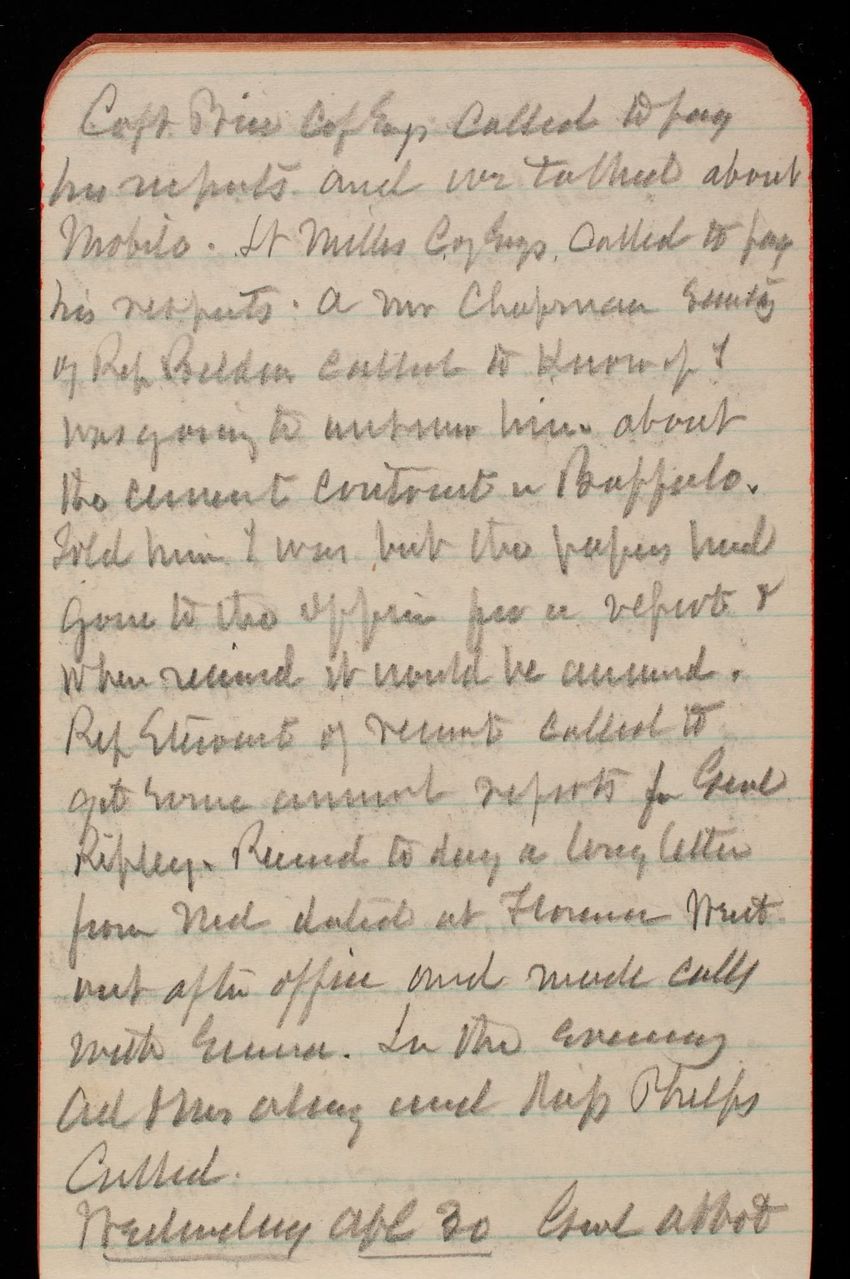 Capt. Price C of Engs called to pay
his respects and we talked about
Mobile. Lt Millis C of Engs. Called to pay
his respects. A Mr Chapman
of Rep Belden called to know if I
was going to answer him about
the cement contract in Buffalo.
Told him I was but the papers had
gone to the office for a report &
when received it would be answered.
Rep Stewart of Vermont called to
get some annual reports for Genl
Ripley. Received to day a long letter
from Ned dated at Florence Went
out after office and made calls
with Emma. In the evening
Ad & Mrs and Miss Phelps
Called.
Wednesday Apl 30 Genl Abbot